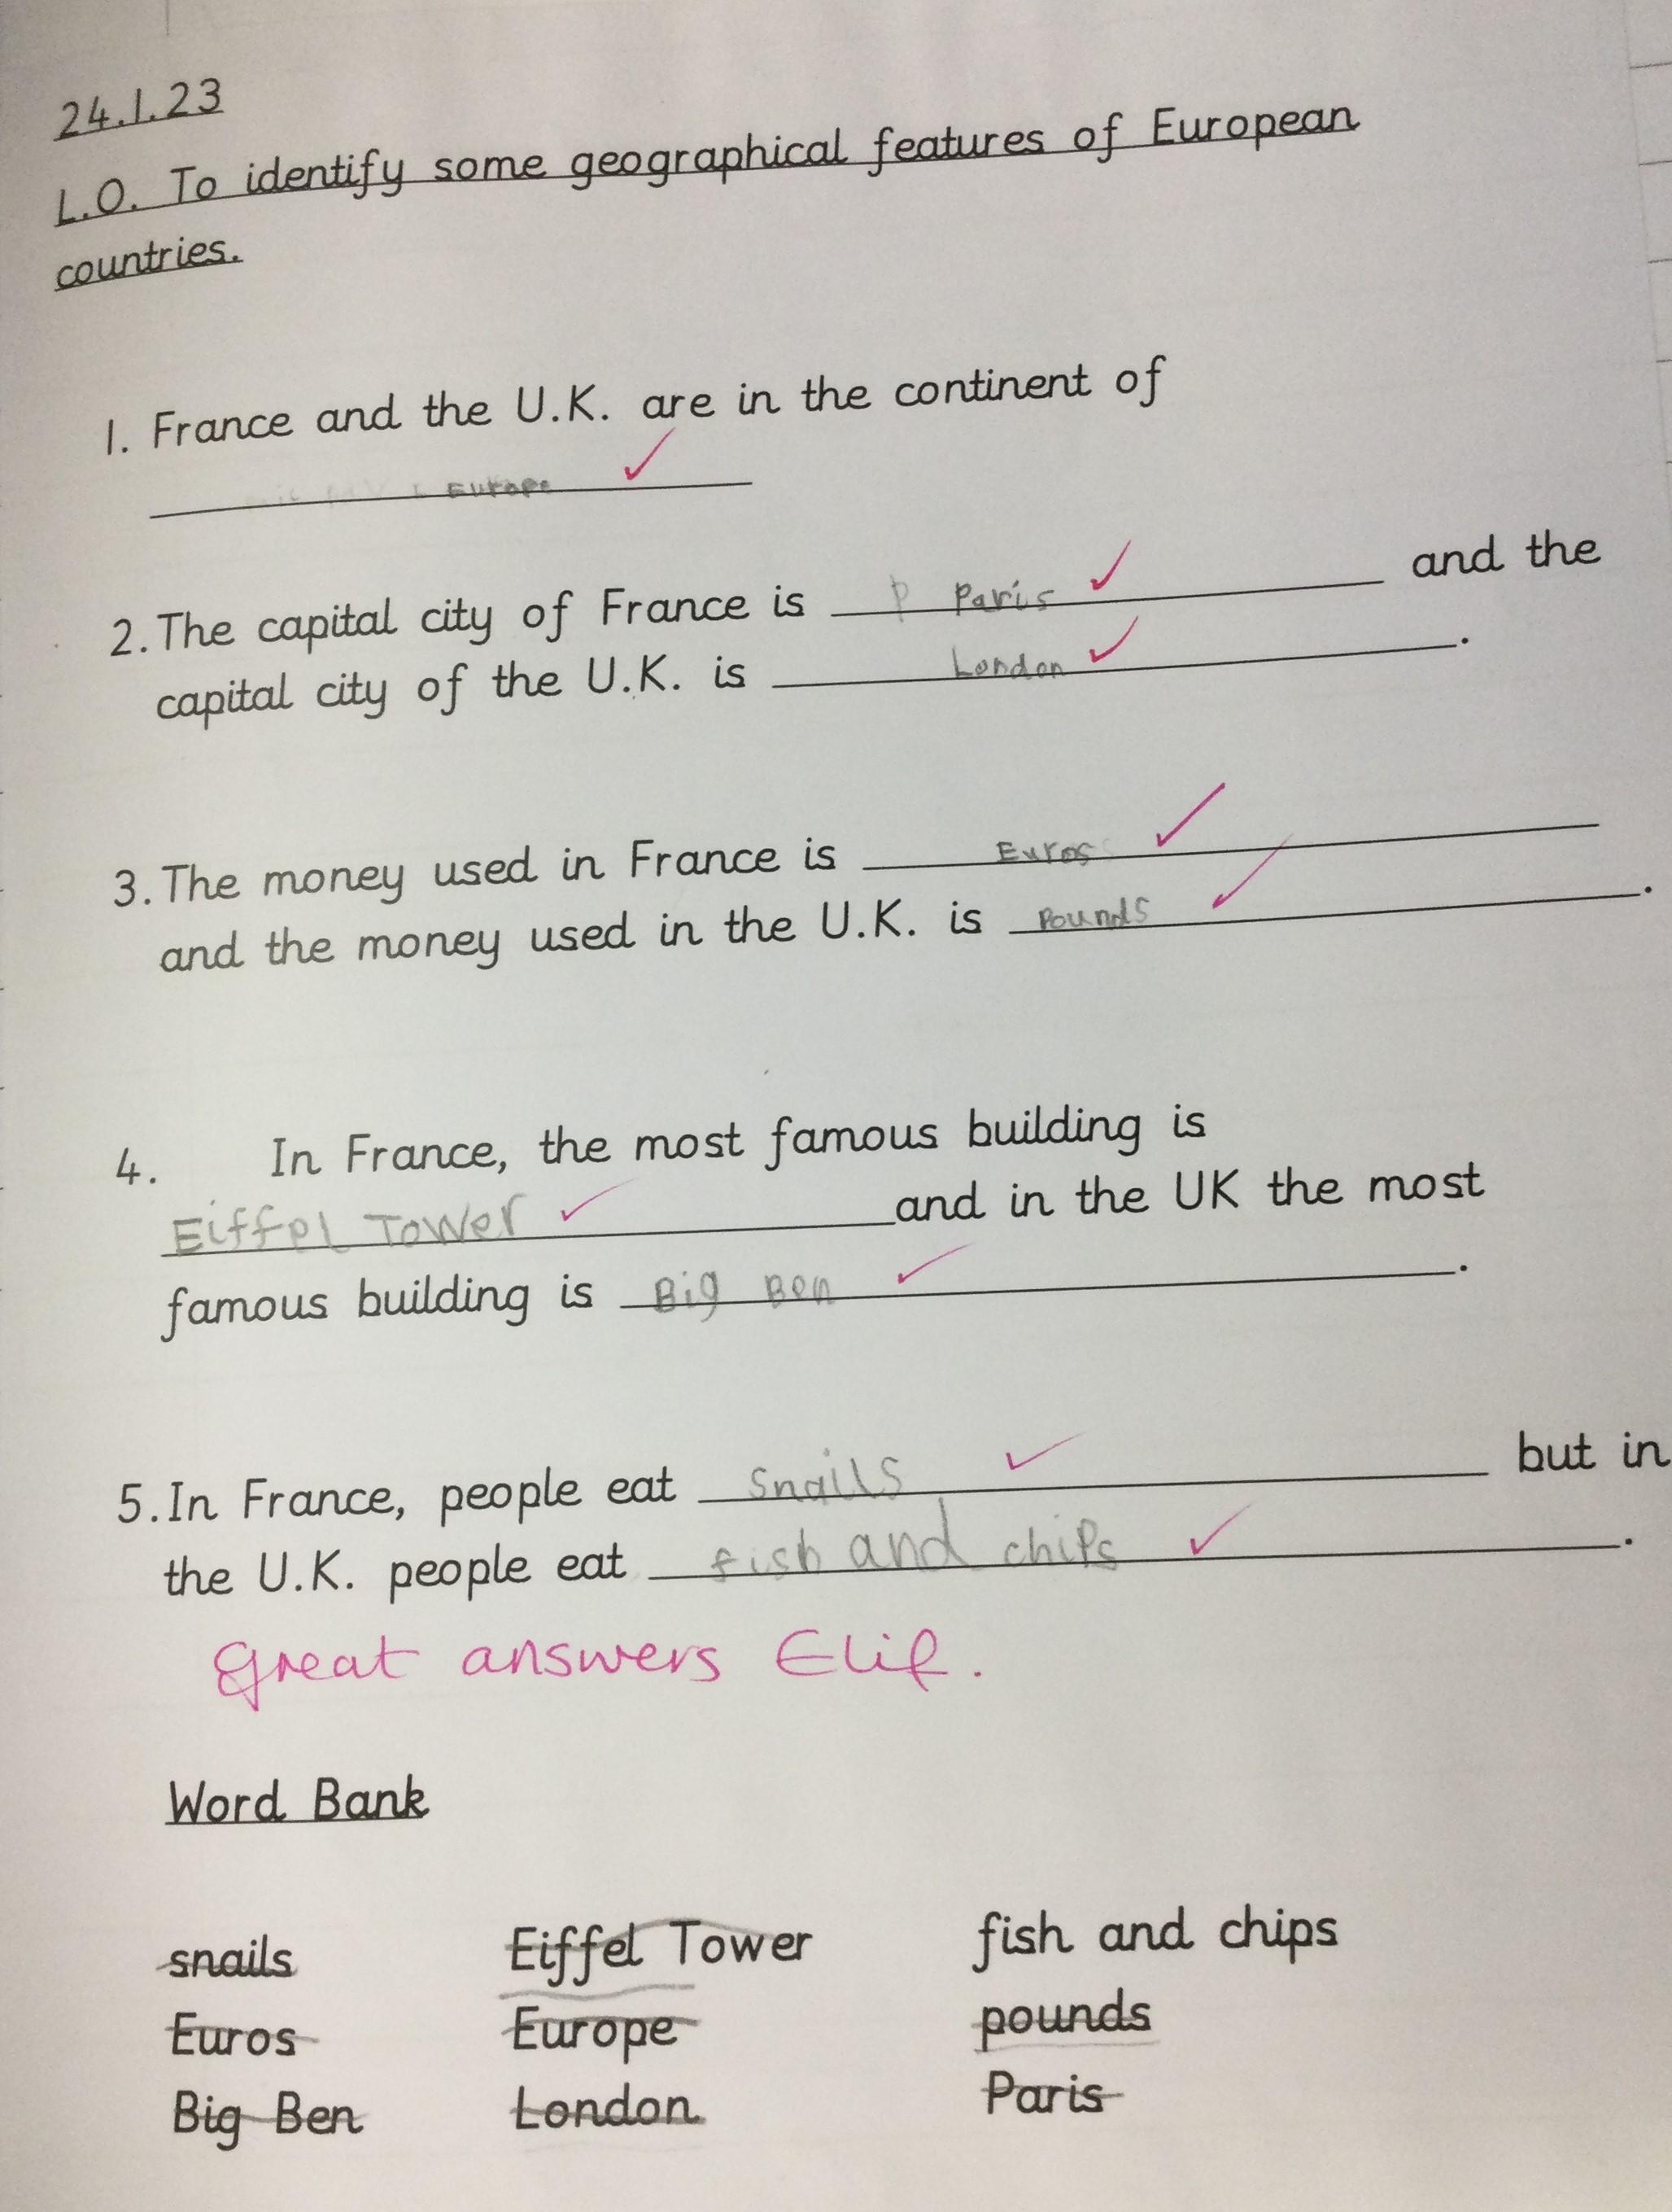 24.1.23
L.O. To identify some geographical features of European
countries.
1. France and the U.K. are in the continent of
Europe
2. The capital city of France is P Paris and the
capital city of the U.K. is London.
3. The money used in France is Euros
and the money used in the U.K. is Pounds.
4. In France, the most famous building is
Eiffel Tower and in the UK the most
famous building is Big Ben.
5. In France, people eat snails but in
the U.K. people eat fish and chips.
Great answers Elif.
Word Bank
snails Eiffel Tower fish and chips
Euros Europe pounds
Big Ben London Paris